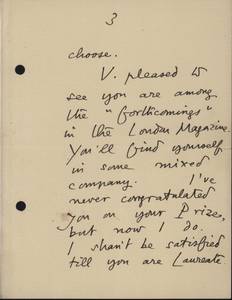 3
choose.
V. pleased to
see you are among
the "forthcomings"
in the London Magazine.
You'll find yourself
in some mixed
company. I've
never congratulated
you on your Prize,
but now I do.
I shan't be satisfied
till you are Laureate.